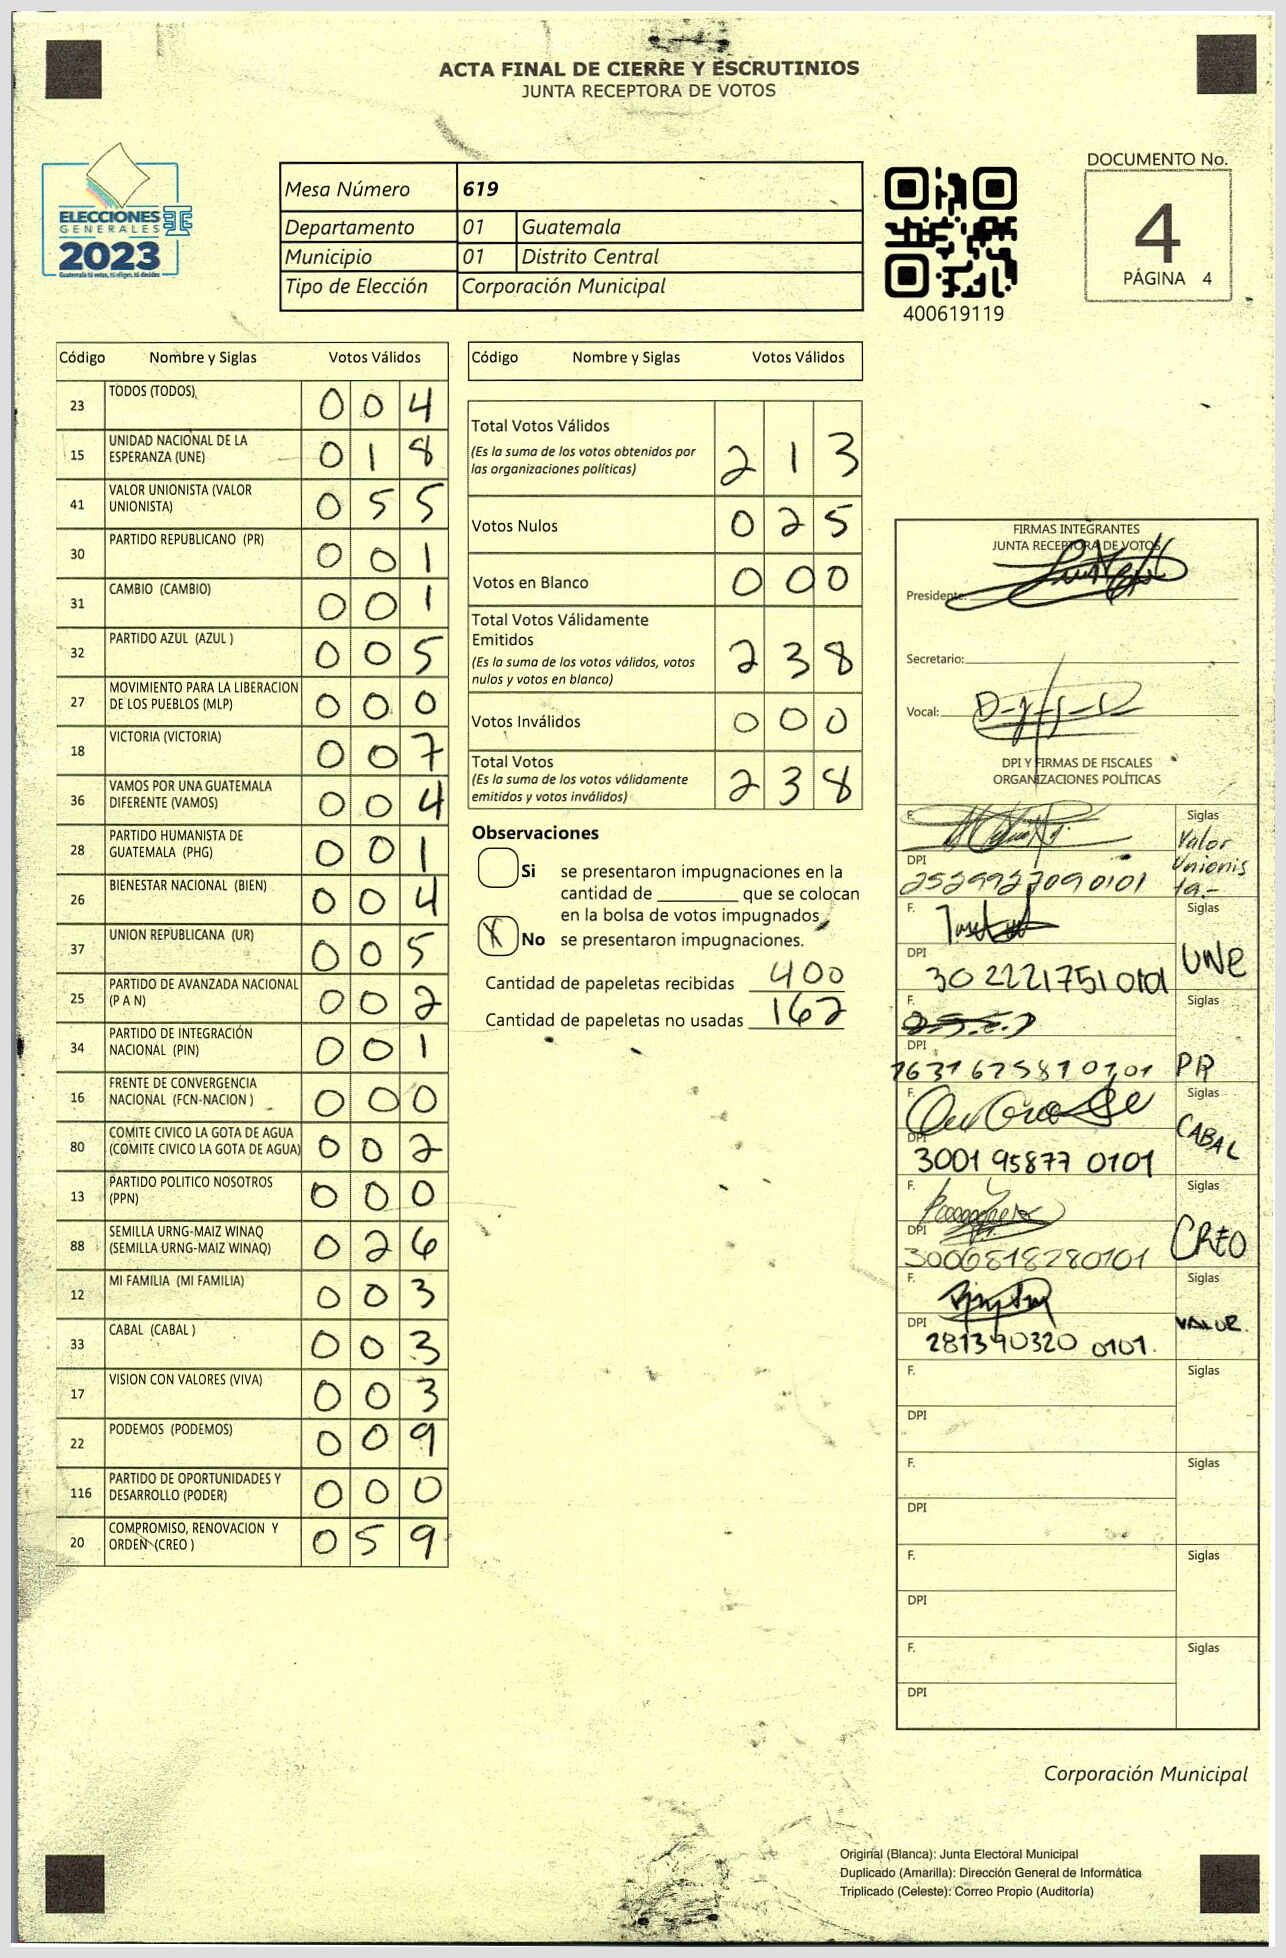 ACTA FINAL DE CIERRE Y ESCRUTINIOS
JUNTA RECEPTORA DE VOTOS
ELECCIONES
GENERALES
2023
Guatemala tú votas, tú eliges, tú decides
Mesa Número 619
Departamento 01 Guatemala
Municipio 01 Distrito Central
Tipo de Elección Corporación Municipal
400619119
DOCUMENTO No.
4
PÁGINA 4
Código Nombre y Siglas Votos Válidos
23 TODOS (TODOS) 0 0 4
15 UNIDAD NACIONAL DE LA ESPERANZA (UNE) 0 1 8
41 VALOR UNIONISTA (VALOR UNIONISTA) 0 5 5
30 PARTIDO REPUBLICANO (PR) 0 0 1
31 CAMBIO (CAMBIO) 0 0 1
32 PARTIDO AZUL (AZUL ) 0 0 5
27 MOVIMIENTO PARA LA LIBERACION DE LOS PUEBLOS (MLP) 0 0 0
18 VICTORIA (VICTORIA) 0 0 7
36 VAMOS POR UNA GUATEMALA DIFERENTE (VAMOS) 0 0 4
28 PARTIDO HUMANISTA DE GUATEMALA (PHG) 0 0 1
26 BIENESTAR NACIONAL (BIEN) 0 0 4
37 UNION REPUBLICANA (UR) 0 0 5
25 PARTIDO DE AVANZADA NACIONAL (P A N) 0 0 2
34 PARTIDO DE INTEGRACIÓN NACIONAL (PIN) 0 0 1
16 FRENTE DE CONVERGENCIA NACIONAL (FCN-NACION ) 0 0 0
80 COMITE CIVICO LA GOTA DE AGUA (COMITE CIVICO LA GOTA DE AGUA) 0 0 2
13 PARTIDO POLITICO NOSOTROS (PPN) 0 0 0
88 SEMILLA URNG-MAIZ WINAQ (SEMILLA URNG-MAIZ WINAQ) 0 2 6
12 MI FAMILIA (MI FAMILIA) 0 0 3
33 CABAL (CABAL ) 0 0 3
17 VISION CON VALORES (VIVA) 0 0 3
22 PODEMOS (PODEMOS) 0 0 9
116 PARTIDO DE OPORTUNIDADES Y DESARROLLO (PODER) 0 0 0
20 COMPROMISO, RENOVACION Y ORDEN (CREO ) 0 5 9
Código Nombre y Siglas Votos Válidos
Total Votos Válidos 2 1 3
(Es la suma de los votos obtenidos por
las organizaciones políticas)
Votos Nulos 0 2 5
Votos en Blanco 0 0 0
Total Votos Válidamente
Emitidos 2 3 8
(Es la suma de los votos válidos, votos
nulos y votos en blanco)
Votos Inválidos 0 0 0
Total Votos 2 3 8
(Es la suma de los votos válidamente
emitidos y votos inválidos)
Observaciones
Si se presentaron impugnaciones en la
cantidad de ________ que se colocan
en la bolsa de votos impugnados
X No se presentaron impugnaciones.
Cantidad de papeletas recibidas 400
Cantidad de papeletas no usadas 162
FIRMAS INTEGRANTES
JUNTA RECEPTORA DE VOTOS
Presidente:
Secretario:
Vocal:
DPI Y FIRMAS DE FISCALES
ORGANIZACIONES POLÍTICAS
F. Siglas
Valor
Unionis
ta.-
DPI 2529927090101
F. Siglas
UNE
DPI 30 2221751 0101
F. Siglas
PR
DPI 1631625810101
F. Siglas
CABAL
DPI 3001 95877 0101
F. Siglas
CREO
DPI 3006818280101
F. Siglas
VALOR
DPI 281390320 0101.
F. Siglas
DPI
F. Siglas
DPI
F. Siglas
DPI
F. Siglas
DPI
Corporación Municipal
Original (Blanca): Junta Electoral Municipal
Duplicado (Amarilla): Dirección General de Informática
Triplicado (Celeste): Correo Propio (Auditoría)